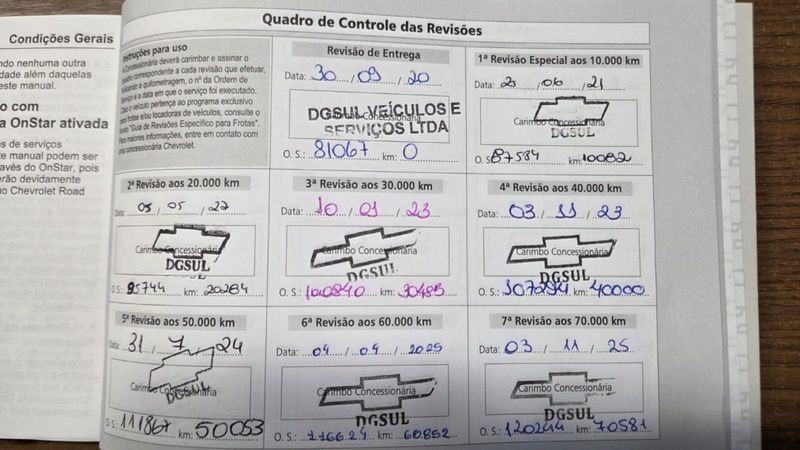 Condições Gerais
ndo nenhuma outra
dade além daquelas
este manual.
o com
a OnStar ativada
es de serviços
te manual podem ser
avés do OnStar, pois
erão devidamente
no Chevrolet Road
Quadro de Controle das Revisões
Instruções para uso
A Concessionária deverá carimbar e assinar o
quadro correspondente a cada revisão que efetuar,
indicando a quilometragem, o nº da Ordem de
Serviço e a data em que o serviço foi executado.
Caso o veículo pertença ao programa exclusivo
para frotas e/ou locadoras de veículos, consulte o
"Guia de Revisões Específico para Frotas".
Para maiores informações, entre em contato com
uma concessionária Chevrolet.
Revisão de Entrega
Data: 30 / 09 / 20
Carimbo Concessionária
DGSUL VEÍCULOS E
SERVIÇOS LTDA
O. S.: 81067 km: 0
1ª Revisão Especial aos 10.000 km
Data: / 06 / 21
Carimbo Concessionária
DGSUL
O. S.: 87584 km: 10082
2ª Revisão aos 20.000 km
Data: 05 / 05 / 22
Carimbo Concessionária
DGSUL
O. S.: 95744 km: 20284
3ª Revisão aos 30.000 km
Data: 10 / 01 / 23
Carimbo Concessionária
DGSUL
O. S.: 100840 km: 30485
4ª Revisão aos 40.000 km
Data: 03 / 11 / 23
Carimbo Concessionária
DGSUL
O. S.: 107294 km: 40000
5ª Revisão aos 50.000 km
Data: 31 / 7 / 24
Carimbo Concessionária
DGSUL
O. S.: 111867 km: 50053
6ª Revisão aos 60.000 km
Data: 04 / 04 / 2025
Carimbo Concessionária
DGSUL
O. S.: 116624 km: 60852
7ª Revisão aos 70.000 km
Data: 03 / 11 / 25
Carimbo Concessionária
DGSUL
O. S.: 120244 km: 70581